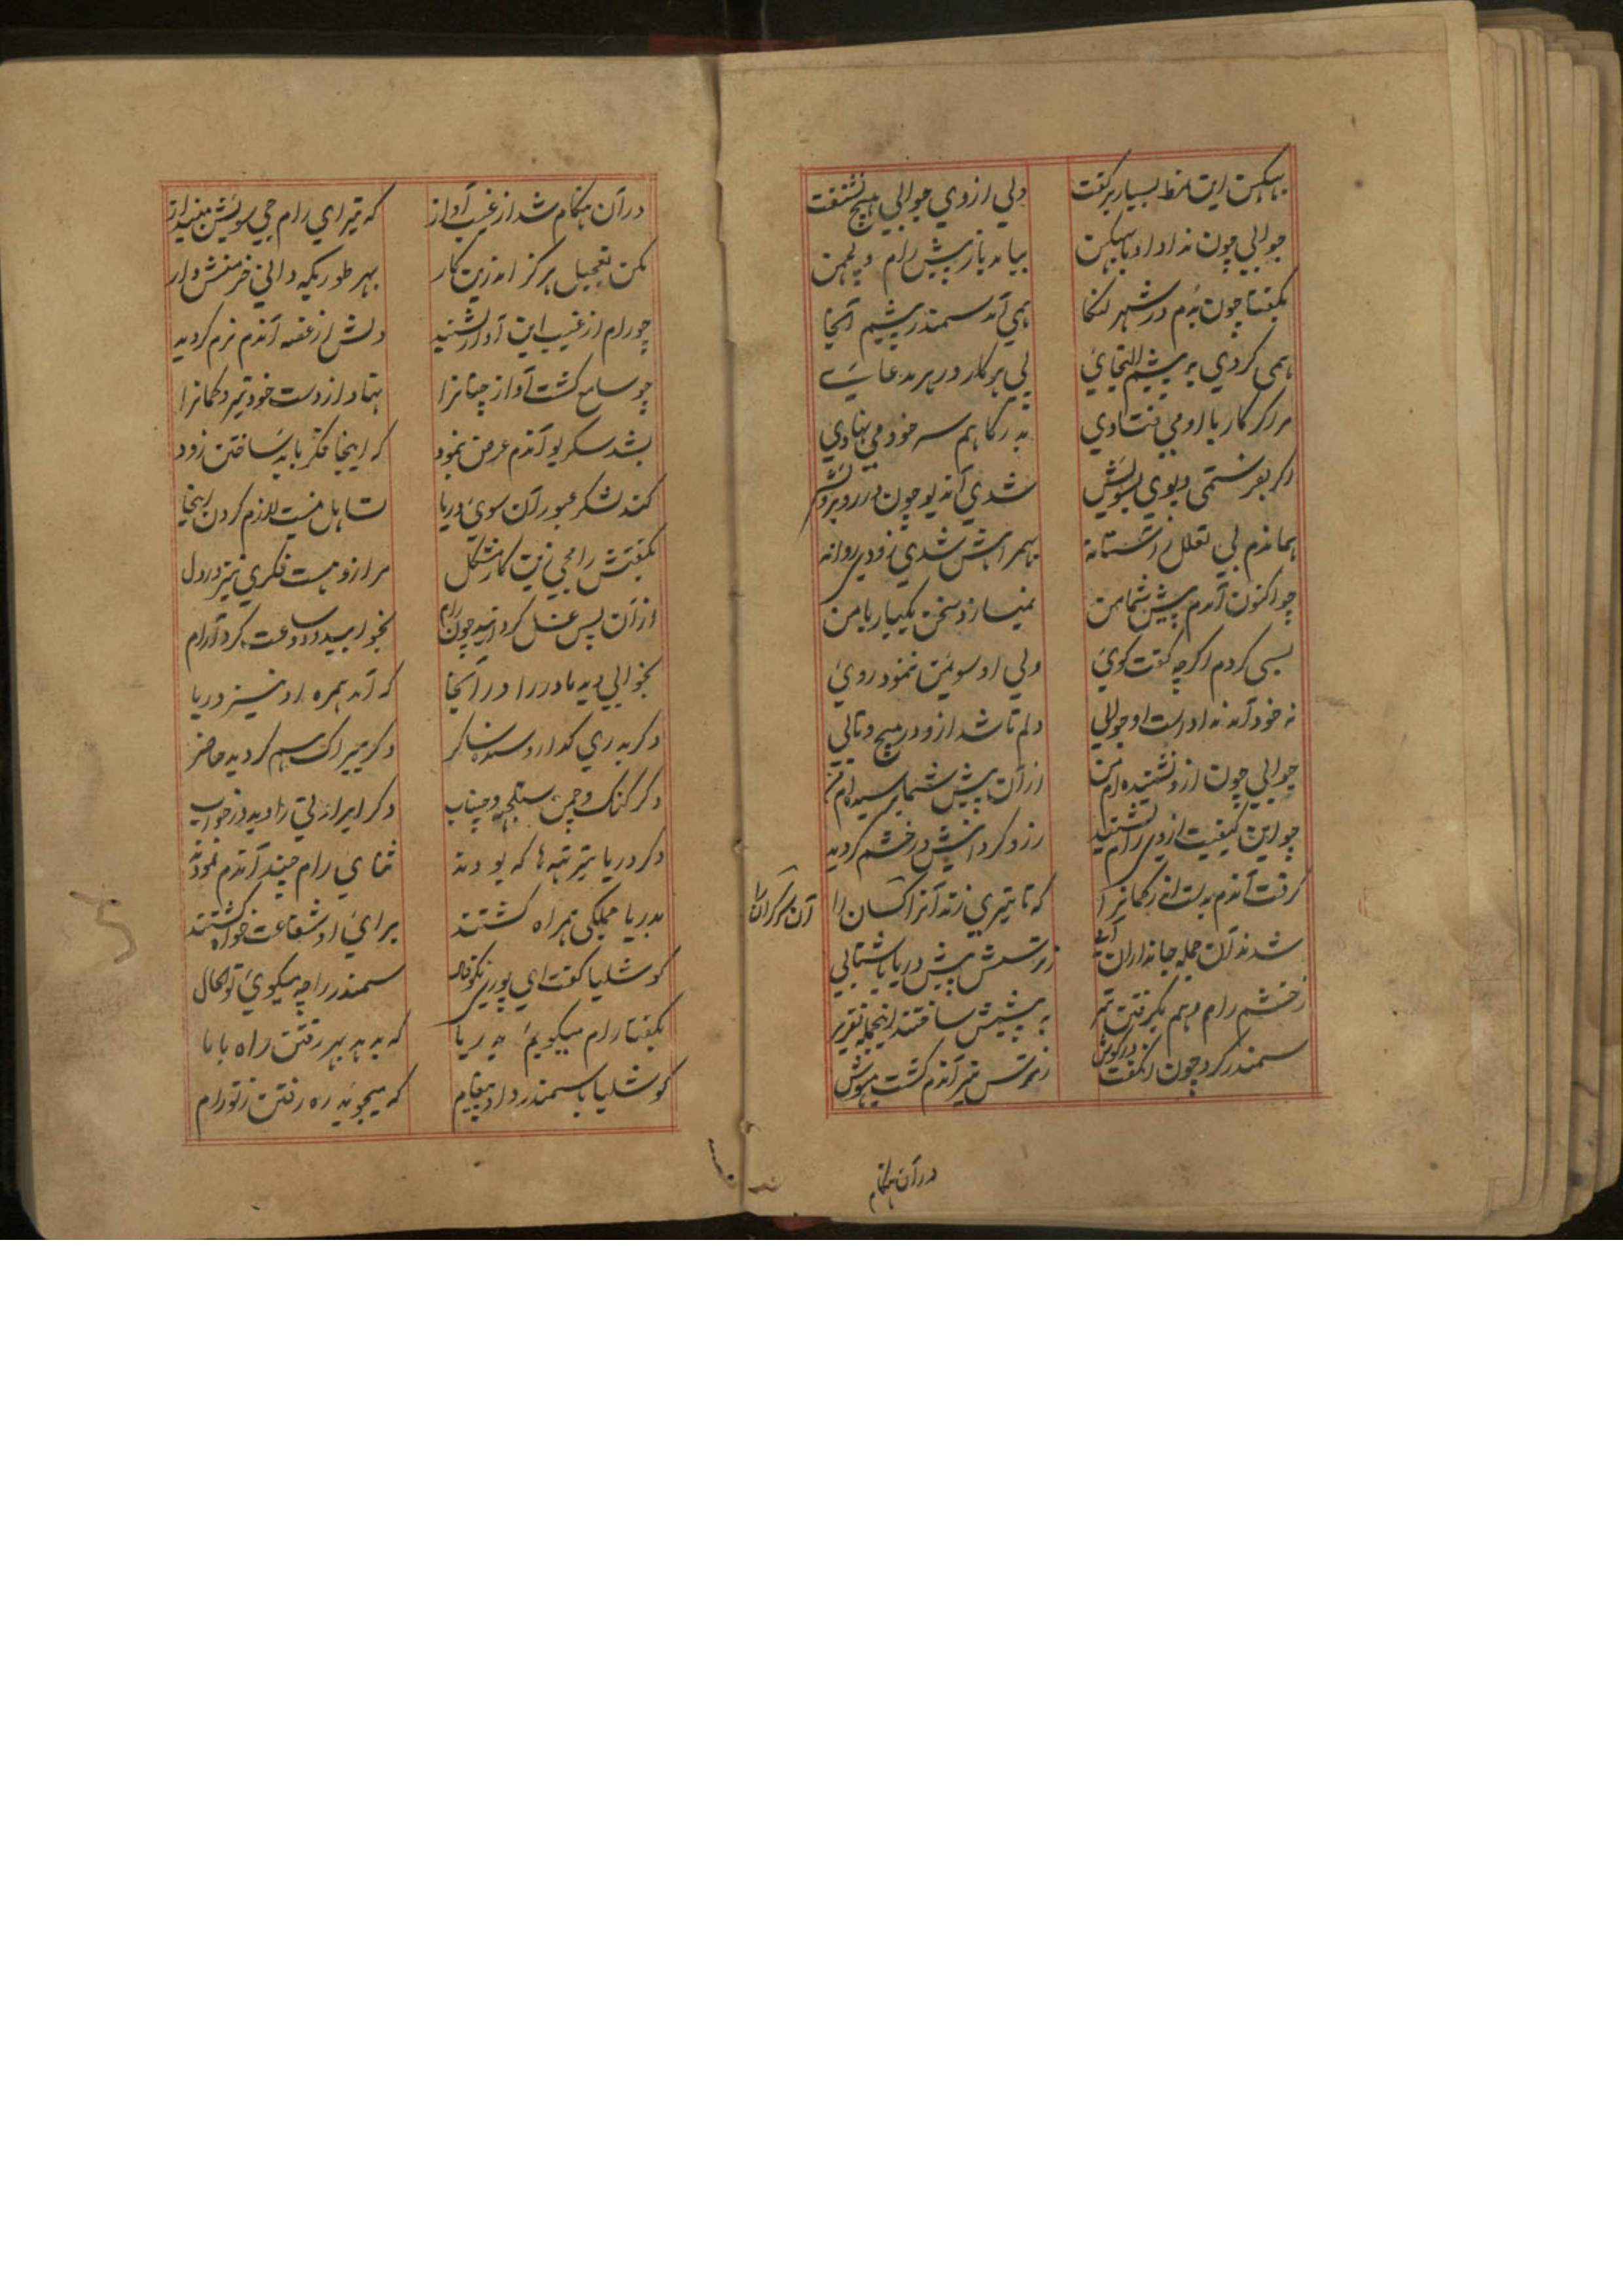 ببهیکن این نمط بسیار برگفت ولی از وی جوابی هیچ نشنفت
جوابی چون نداد او با ببهیکن بیامد باز پیش رام و لچمن
بگفتا چون بدم در شهر لنکا همی آمد سمندر پیشم آنجا
همی کردی بر پیشم التجائی پی هر کار در هر مدعائی
مرا گر کار با او می فتادی بدرگاهم سر خود می نهادی
دگر بفرستمی دیوی بسویش شدی آن دیو چون در روبرویش
هماندم بی تعلل زآستانه بهمراهش شدی زودی روانه
چو اکنون آمدم پیش شما من نمیسازد سخن یکبار با من
بسی کردم اگرچه گفت گوئی ولی او سویمن ننمود روئی
نه خود آمد نه دادست او جوابی دلم تا شد ازو در پیچ و تابی
جوابی چون ازو نشنیده ام من از آن پیش شما رسیده ام من
چو این کیفیت از وی رام بشنید رزو کردانیش در خشم گردید
گرفت آندم بدست اندر کمانرا که تا تیری زند آنرا کسان را
آن سرکران را
شدند آن جمله جانداران آبی ز ترسش پیش دریا با شتابی
ز خشم رام و هم بگرفتن تیر به پیشش ساختند اینجمله تقریر
سمندر کرد چون این گفت در گوش ز ترس تیر آندم گشت بیهوش
در آن هنگام
در آن هنگام شد از غیب آواز که تیر ای رام جی سویش مینداز
مکن تعجیل هرگز اندرین کار بهر طوریکه دانی خرمنش دار
چو رام از غیب این آواز بشنید دلش از غصه آندم نرم گردید
چو سامع گشت آواز چنانرا نهاد از دست خود تیر و کمانرا
بشد سکریو آندم عرض بنمود که اینجا فکر باید ساختن زود
کند لشکر عبور آن سوی دریا تساهل نیست لازم کردن اینجا
بگفتش رامجی زین کار مشکل مرا زو هست فکری نیز در دل
از آن پس غسل کرد آنید چون رام بخوابید و دو ساعت کرد آرام
بخوابی دید مادر را در آنجا که آمد همره او نیز دریا
دگر بدری کدار و سنده ساگر دگر تیراک هم گردید حاضر
دگر گنگ و جمن ستلج و چناب دگر ایراوتی را دید در خواب
دگر دریا و تیرتهه ها که بودند ثنای رام چند آندم نمودند
بدریا جملگی همراه گشتند برای او شفاعت خواه گشتند
کوشلیا گفت ای پور نکوفال سمندر را چه میگوئی تو الحال
بگفتا رام میگویم بدریا که بدهد بهر رفتن راه با ما
کوشلیا با سمندر داد پیغام که میجوید ره رفتن ز تو رام